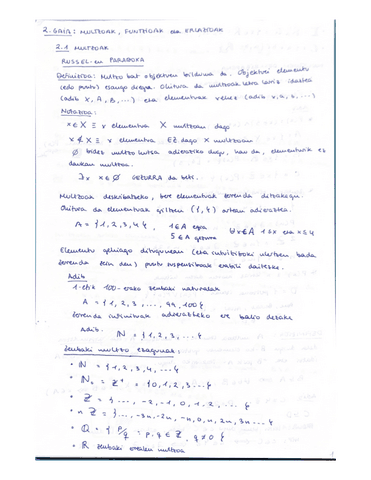 2. GAIA: MULTZOAK, FUNTZIOAK eta ERLAZIOAK
2.1 MULTZOAK
RUSSEL-en PARADOXA
Definizioa: Multzo bat objektuen bilduma da. Objektuei elementu
(edo puntu) esango diegu. Ohitura da multzoak letra larriz idaztea
(adib X, A, B, ...) eta elementuak xehez (adib x, a, b, ...)
Notazioa:
x ∈ X ≡ x elementua X multzoan dago
x ∉ X ≡ x elementua EZ dago X multzoan
∅ bidez multzo hutsa adieraziko dugu, hau da, elementurik ez
daukan multzoa.
∃x x ∈ ∅ GEZURRA da beti.
Multzoak deskribatzeko, bere elementuak zerrenda ditzakegu.
Ohitura da elementuak giltzen { , } artean adieraztea.
A = {1, 2, 3, 4}, 1 ∈ A egia 5 ∈ A gezurra ∀x ∈ A 1 ≤ x eta x ≤ 4
Elementu gehiago ditugunean (eta intuitiboki ulertzen bada
zerrenda zein den) puntu suspentsiboak erabil daitezke.
Adib
1-etik 100-erako zenbaki naturalak
A = {1, 2, 3, ..., 99, 100}
Zerrenda infinituak adierazteko ere balio dezake
Adib. ℕ = {1, 2, 3, ...}
Zenbaki multzo ezagunak:
• ℕ = {1, 2, 3, 4, ...}
• ℕ₀ = ℤ⁺ = {0, 1, 2, 3, ...}
• ℤ = {..., -2, -1, 0, 1, 2, ...}
• nℤ = {..., -3n, -2n, -n, 0, n, 2n, 3n, ...}
• ℚ = {p/q : p, q ∈ ℤ, q ≠ 0}
• ℝ zenbaki errealen multzoa